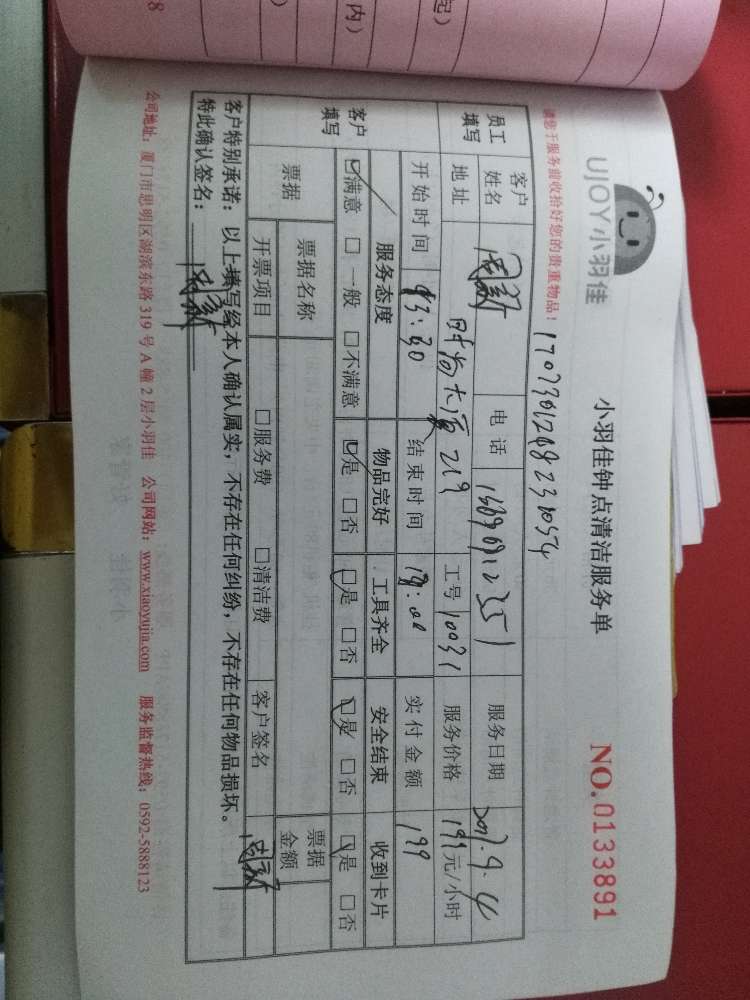 UJOY小羽佳
小羽佳钟点清洁服务单
NO.0133891
请您于服务前收拾好您的贵重物品！
员工填写
客户姓名 电话 服务日期 2017.9.4
地址 时尚大厦219 工号 10031 服务价格 199元/小时
开始时间 13:30 结束时间 实付金额 199
客户填写
服务态度 物品完好 工具齐全 安全结束 收到卡片
☑满意 □一般 □不满意 ☑是 □否 ☑是 □否 ☑是 □否 ☑是 □否
票据 票据名称 票据金额
开票项目 □服务费 □清洁费 客户签名
客户特别承诺：以上填写经本人确认属实，不存在任何纠纷，不存在任何物品损坏。
特此确认签名：
公司地址：厦门市思明区湖滨东路319号A幢2层小羽佳 公司网站：www.xiaoyujia.com 服务监督热线：0592-5888123